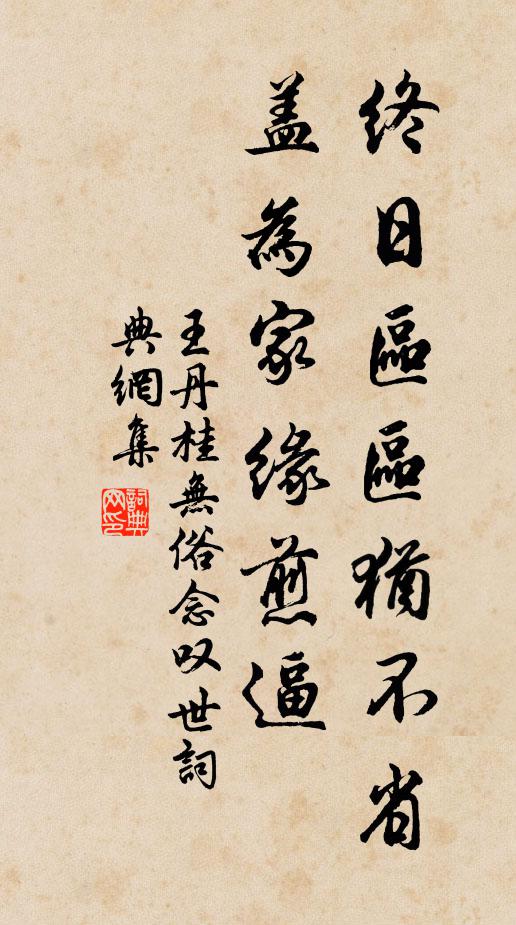 終日區區猶不省
盖為家緣煎逼
王丹桂無俗念叹世詞
典網集
詞典
网印